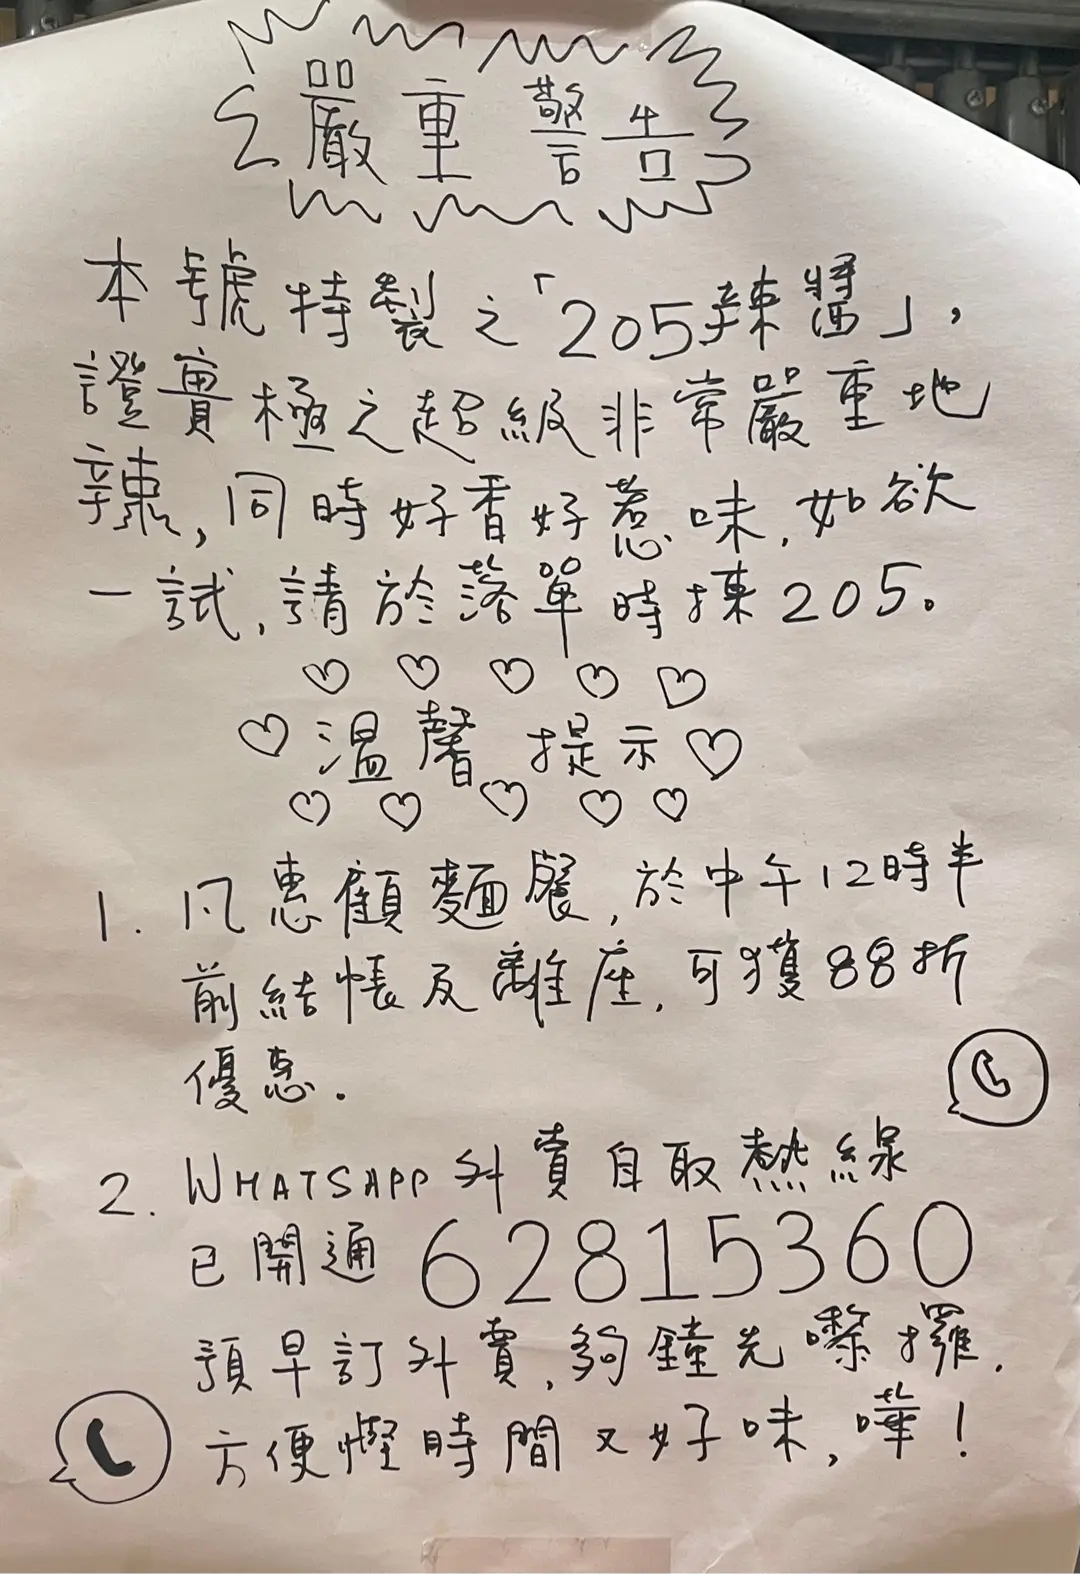 嚴重警告
本號特製之「205辣醬」，
證實極之超級非常嚴重地
辣，同時好香好惹味，如欲
一試，請於落單時揀205。
溫馨提示
1. 凡惠顧麵餐，於中午12時半
前結帳及離座，可獲88折
優惠.
2. WHATSAPP 外賣自取熱線
已開通 62815360
預早訂外賣，夠鐘先嚟攞，
方便慳時間又好味，嘩！